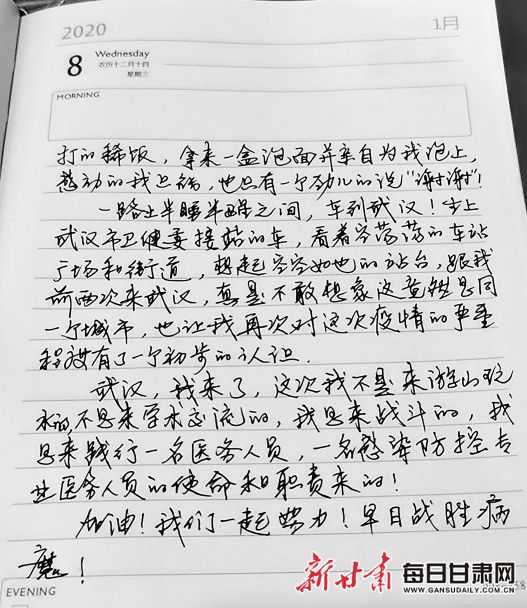 2020
1月
8
Wednesday
农历十二月十四
星期三
MORNING
打的稀饭，拿来一盒泡面并亲自为我泡上，
感动的我，也只有一个劲儿的说“谢谢谢谢”！
一路上半睡半醒之间，车到武汉！坐上
武汉市卫健委接站的车，看着空荡荡的车站
广场和街道，想起空空如也的站台，跟我
前两次来武汉，真是不敢想象这竟然是同
一个城市，也让我再次对这次疫情的严重
程度有了一个初步的认识．
武汉，我来了，这次我不是来游山玩
水的，不是来学术交流的，我是来战斗的，我
是来践行一名医务人员，一名感染防控专
业医务人员的使命和职责来的！
加油！我们一起努力！早日战胜病
魔！
EVENING
新甘肃
每日甘肃网
WWW.GANSUDAILY.COM.CN